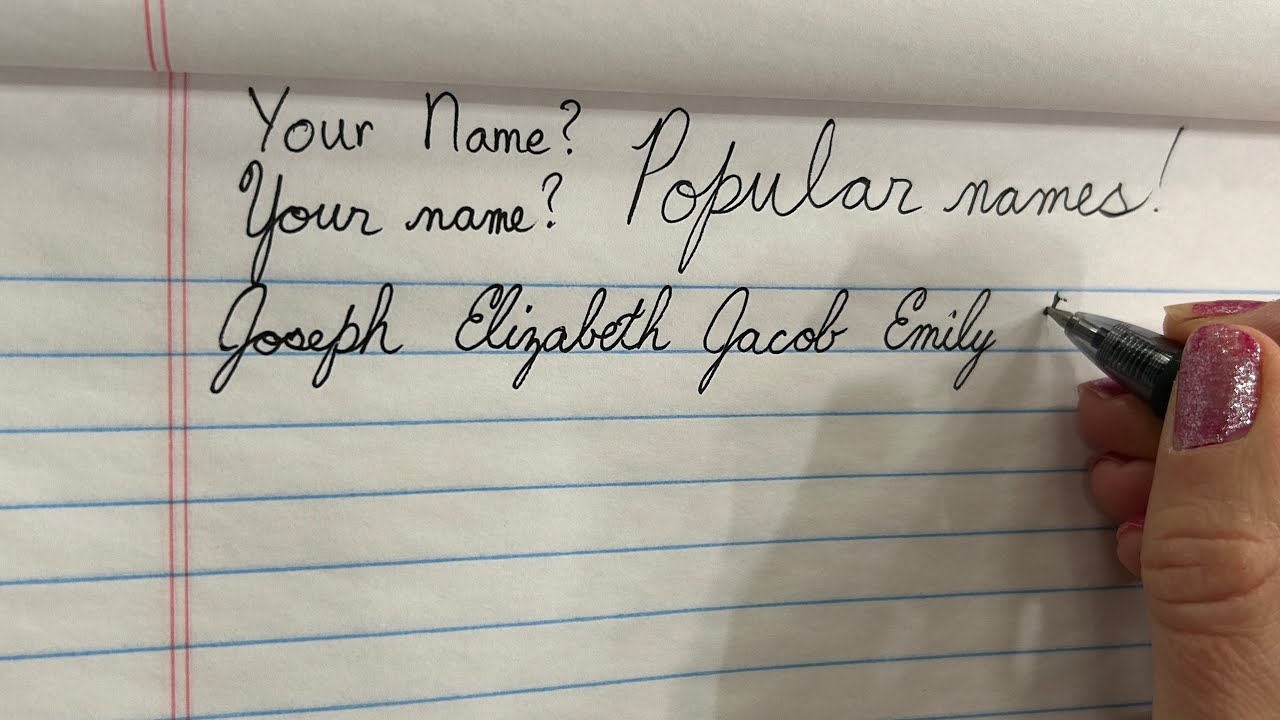 Your Name?
Your name? Popular names!
Joseph Elizabeth Jacob Emily